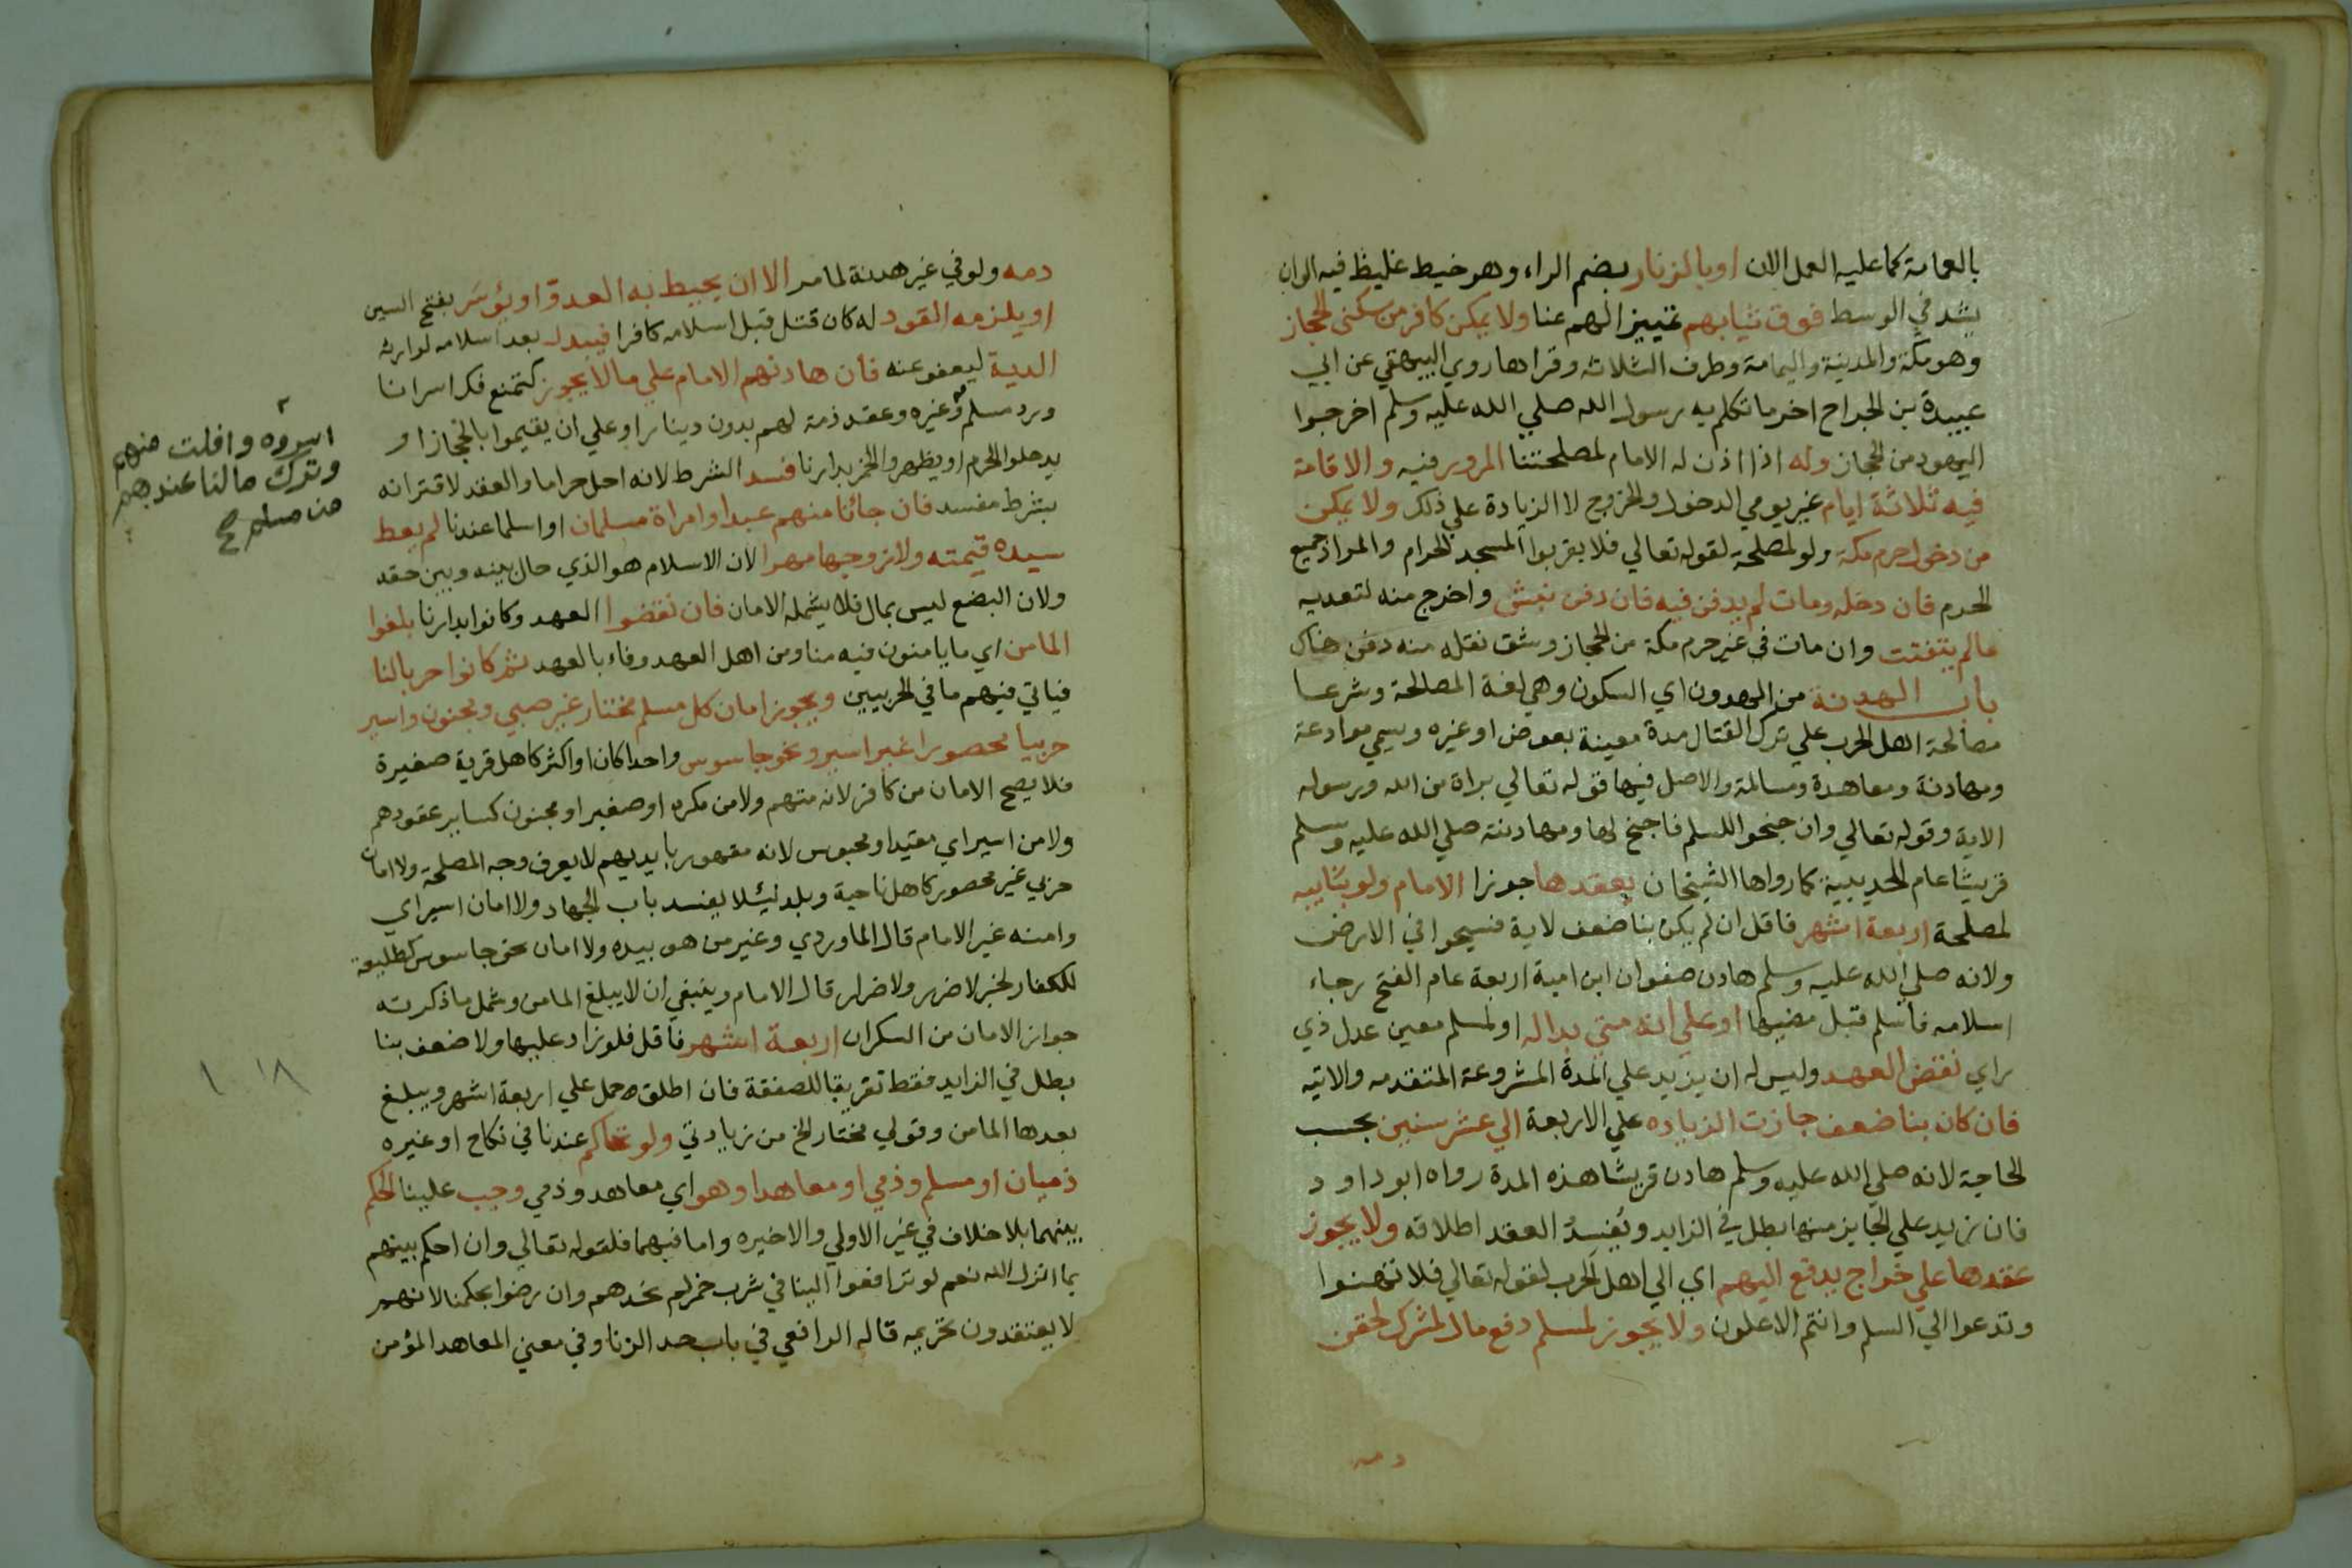 بالعمامة كما عليه العمل الان او بالزنار بضم الراء وهو خيط غليظ فيه الوان
يشد في الوسط فوق ثيابهم تمييزا لهم عنا ولا يمكن كافر من سكنى الحجاز
وهو مكة والمدينة واليمامة وطرف الثلاثه وقراها روي البيهقي عن ابي
عبيدة بن الجراح اخر ما تكلم به رسول الله صلي الله عليه وسلم اخرجوا
اليهود من الحجاز وله اذا اذن له الامام لمصلحتنا المرور فيه والاقامة
فيه ثلاثة ايام غير يومي الدخول والخروج لا الزيادة علي ذلك ولا يمكن
من دخول حرم مكة ولو لمصلحة لقوله تعالي فلا يقربوا المسجد الحرام والمراد جميع
الحرم فان دخله ومات لم يدفن فيه فان دفن نبش واخرج منه لتعديه
مالم يتفتت وان مات في غير حرم مكة من الحجاز وشق نقله منه دفن هناك
باب الهدنة من الهدون اي السكون وهي لغة المصالحة وشرعا
مصالحة اهل الحرب علي ترك القتال مدة معينة بعوض او غيره وتسمي موادعة
ومهادنة ومعاهدة ومسالمة والاصل فيها قوله تعالي براة من الله ورسوله
الاية وقوله تعالي وان جنحوا للسلم فاجنح لها ومهادنته صلي الله عليه وسلم
قريشا عام الحديبية كما رواها الشيخان يعقدها جوزا الامام ولو بنايبه
لمصلحة اربعة اشهر فاقل ان لم يكن بنا ضعف لاية فسيحوا في الارض
ولانه صلي الله عليه وسلم هادن صفوان ابن امية اربعة عام الفتح رجاء
اسلامه فاسلم قبل مضيها او علي انه متي بدا له او لمسلم معين عدل ذي
راي نقض العهد وليس له ان يزيد علي المدة المشروعة المتقدمه والاتيه
فان كان بنا ضعف جازت الزياده علي الاربعة الي عشر سنين بحسب
الحاجة لانه صلي الله عليه وسلم هادن قريشا هذه المدة رواه ابو داود
فان زيد علي الجايز منها بطل في الزايد ويفسد العقد اطلاقه ولا يجوز
عقدها علي خراج يدفع اليهم اي الي اهل الحرب لقوله تعالي فلا تهنوا
وتدعوا الي السلم وانتم الاعلون ولا يجوز لمسلم دفع مال لمشرك لحقن
دمه
دمه ولو في غير هدنة لما مر الا ان يحيط به العدو او يؤسر بفتح السين
او يلزمه القود له كان قتل قبل اسلامه كافرا فيبدل بعد اسلامه لوارثه
الدية ليعفو عنه فان هادنهم الامام علي ما لا يجوز كتمنع فك اسرانا
ورد مسلم وغيره وعقد ذمة لهم بدون دينار او علي ان يقيموا بالحجاز او
يدخلوا الحرم او يظهروا الخمر بدارنا فسد الشرط لانه احل حراما والعقد لاقترانه
بشرط مفسد فان جائنا منهم عبد او امراة مسلمان او اسلما عندنا لم يعط
سيده قيمته ولا زوجها مهرا لان الاسلام هو الذي حال بينه وبين حقه
ولان البضع ليس بمال فلا يشمله الامان فان نقضوا العهد وكانوا بدارنا بلغوا
المامن اي ما يامنون فيه منا ومن اهل العهد وفاء بالعهد ثم كانوا حربا لنا
فياتي فيهم ما في الحربيين ويجوز امان كل مسلم مختار غير صبي ومجنون واسير
حربيا محصورا غير اسير ونحو جاسوس واحدا كان او اكثر كاهل قرية صغيرة
فلا يصح الامان من كافر لانه متهم ولا من مكره او صغير او مجنون كساير عقودهم
ولا من اسير اي مقيد او محبوس لانه مقهور بايديهم لا يعرف وجه المصلحة ولا امان
حربي غير محصور كاهل ناحية وبلد لئلا يفسد باب الجهاد ولا امان اسير اي
وامنه غير الامام قال الماوردي وغير من هو بيده ولا امان نحو جاسوس كطليعة
للكفار لخبر لا ضرر ولا ضرار قال الامام وينبغي ان لا يبلغ المامن وشمل ما ذكرته
جواز الامان من السكران اربعة اشهر فاقل فلو زاد عليها ولا ضعف بنا
بطل في الزايد فقط تفريقا للصفقة فان اطلق حمل علي اربعة اشهر ويبلغ
بعدها المامن وقولي مختار الخ من زيادتي ولو تحاكم عندنا في نكاح او غيره
ذميان او مسلم وذمي او معاهد او هو اي معاهد وذمي وجب علينا الحكم
بينهما بلا خلاف في غير الاولي والاخيره واما فيهما فلقوله تعالي وان احكم بينهم
بما انزل الله نعم لو ترافعوا الينا في شرب خمر لم نحدهم وان رضوا بحكمنا لانهم
لا يعتقدون تحريمه قاله الرافعي في باب حد الزنا وفي معني المعاهد المؤمن
اسروه وافلت منهم
وترك مالنا عندهم
من مسلم صح